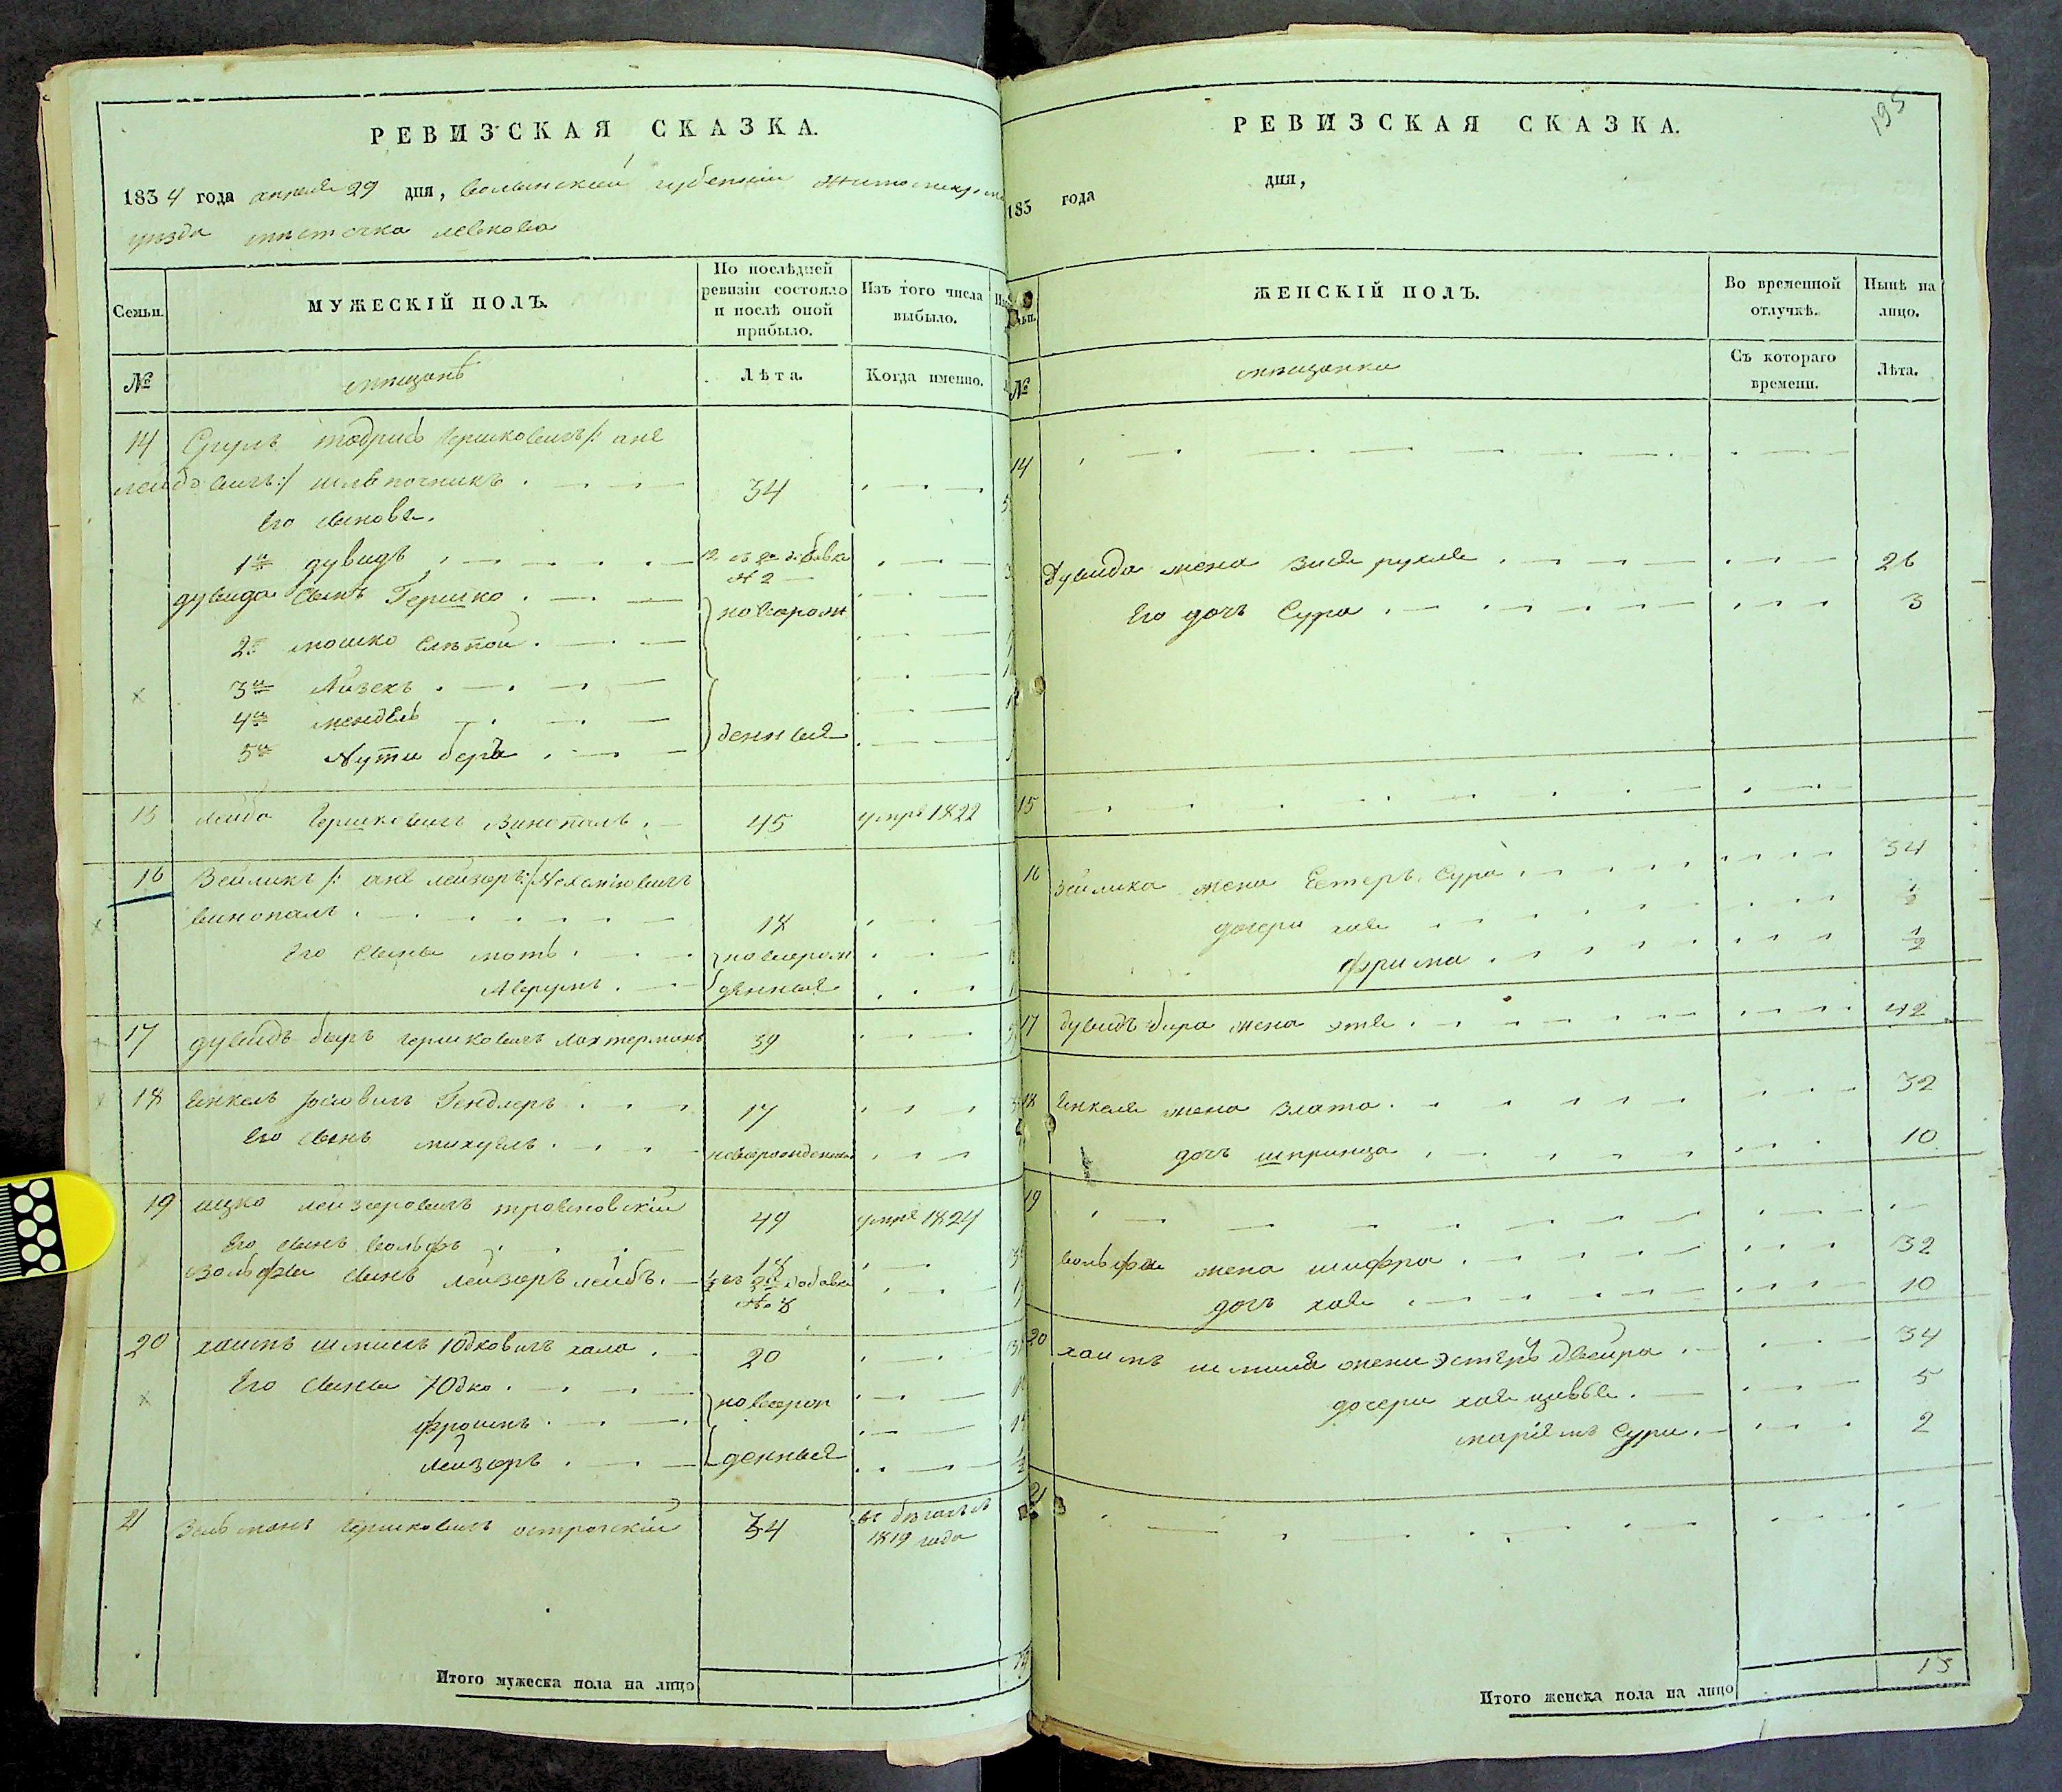 РЕВИЗСКАЯ СКАЗКА.
1834 года апреля 29 дня, волынской губернии житомирскаго
уезда местечка левкова
Семьи.
МУЖЕСКІЙ ПОЛЪ.
По послѣдней ревизіи состояло и послѣ оной прибыло.
Изъ того числа выбыло.
№
мещанъ
Лѣта.
Когда именно.
14 Сруль Герсковичъ /: онъ
лейбовичъ :/ 34
Его сыновья.
1й дувидъ 12 въ 2й добавк
№ 2
дувида сынъ Гершко новорож
2й мошко
3й Айзекъ
4й мендель
5й беръ денные
15 лейба Гершковичъ Винопалъ 45 умре 1822
16 Зейликъ /: онъ лейзоръ :/ Нехемiовичъ
винопалъ 18
Его сыны мотъ новорож
Аврумъ денные
17 дувидъ беръ гершковичъ лахтерманъ 39
18 Янкель Iосiовичъ Гендлеръ 17
Его сынъ михуель новорожденны
19 ицко лейзеровичъ трояновскiй 49 умре 1824
Его сынъ вольфъ 18
вольфа сынъ лейзоръ лейбъ въ 2й добавк
№ 8
20 хаимъ шмиль Юдковичъ хала 20
Его сыны Юдко новорож
фроимъ
лейзоръ денные
21 Зельманъ Гершковичъ острогскiй 34 въ бегахъ съ
1819 года
Итого мужеска пола на лицо
РЕВИЗСКАЯ СКАЗКА.
195
183 года дня,
ЖЕНСКІЙ ПОЛЪ.
Во временной отлучкѣ.
Нынѣ на лицо.
№
мещанки
Съ котораго времени.
Лѣта.
14
Дувида жена Зися рухля 26
Его дочь Сура 3
15
16 Зейлика жена Естеръ Сура 34
дочери хая
фрима 1/2
17 дувидъ бера жена этя 42
18 Янкеля жена Злата 32
дочь шпринца 10
19
вольфа жена шифра 32
дочь хая 10
20 хаимъ шмиля жена эстеръ двейра 34
дочери хая цивья 5
марiямъ Сура 2
21
Итого женска пола на лицо 15